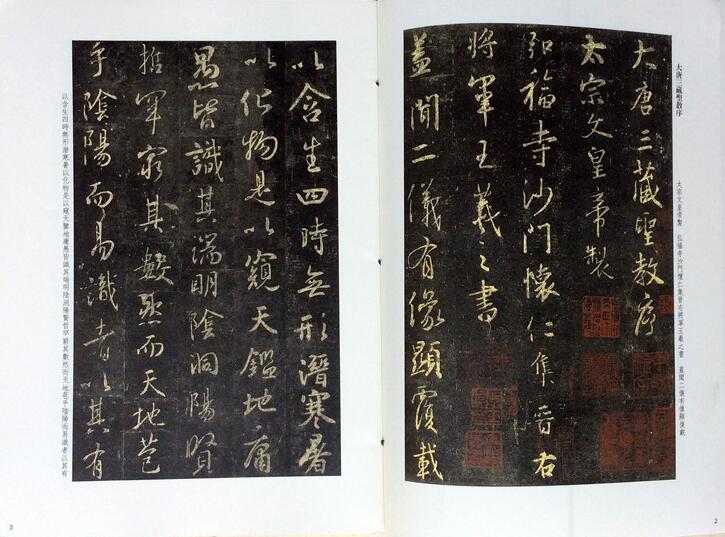 大唐三藏聖教序　太宗文皇帝製　弘福寺沙門懷仁集晉右將軍王羲之書　蓋聞二儀有像顯覆載
大唐三藏聖教序
太宗文皇帝製
弘福寺沙門懷仁集晉右
將軍王羲之書
蓋聞二儀有像顯覆載
2
以含生四時無形潛寒暑
以化物是以窺天鑑地庸
愚皆識其端明陰洞陽賢
哲罕窮其數然而天地苞
乎陰陽而易識者以其有
以含生四時無形潛寒暑以化物是以窺天鑒地庸愚皆識其端明陰洞陽賢哲罕窮其數然而天地苞乎陰陽而易識者以其有
3